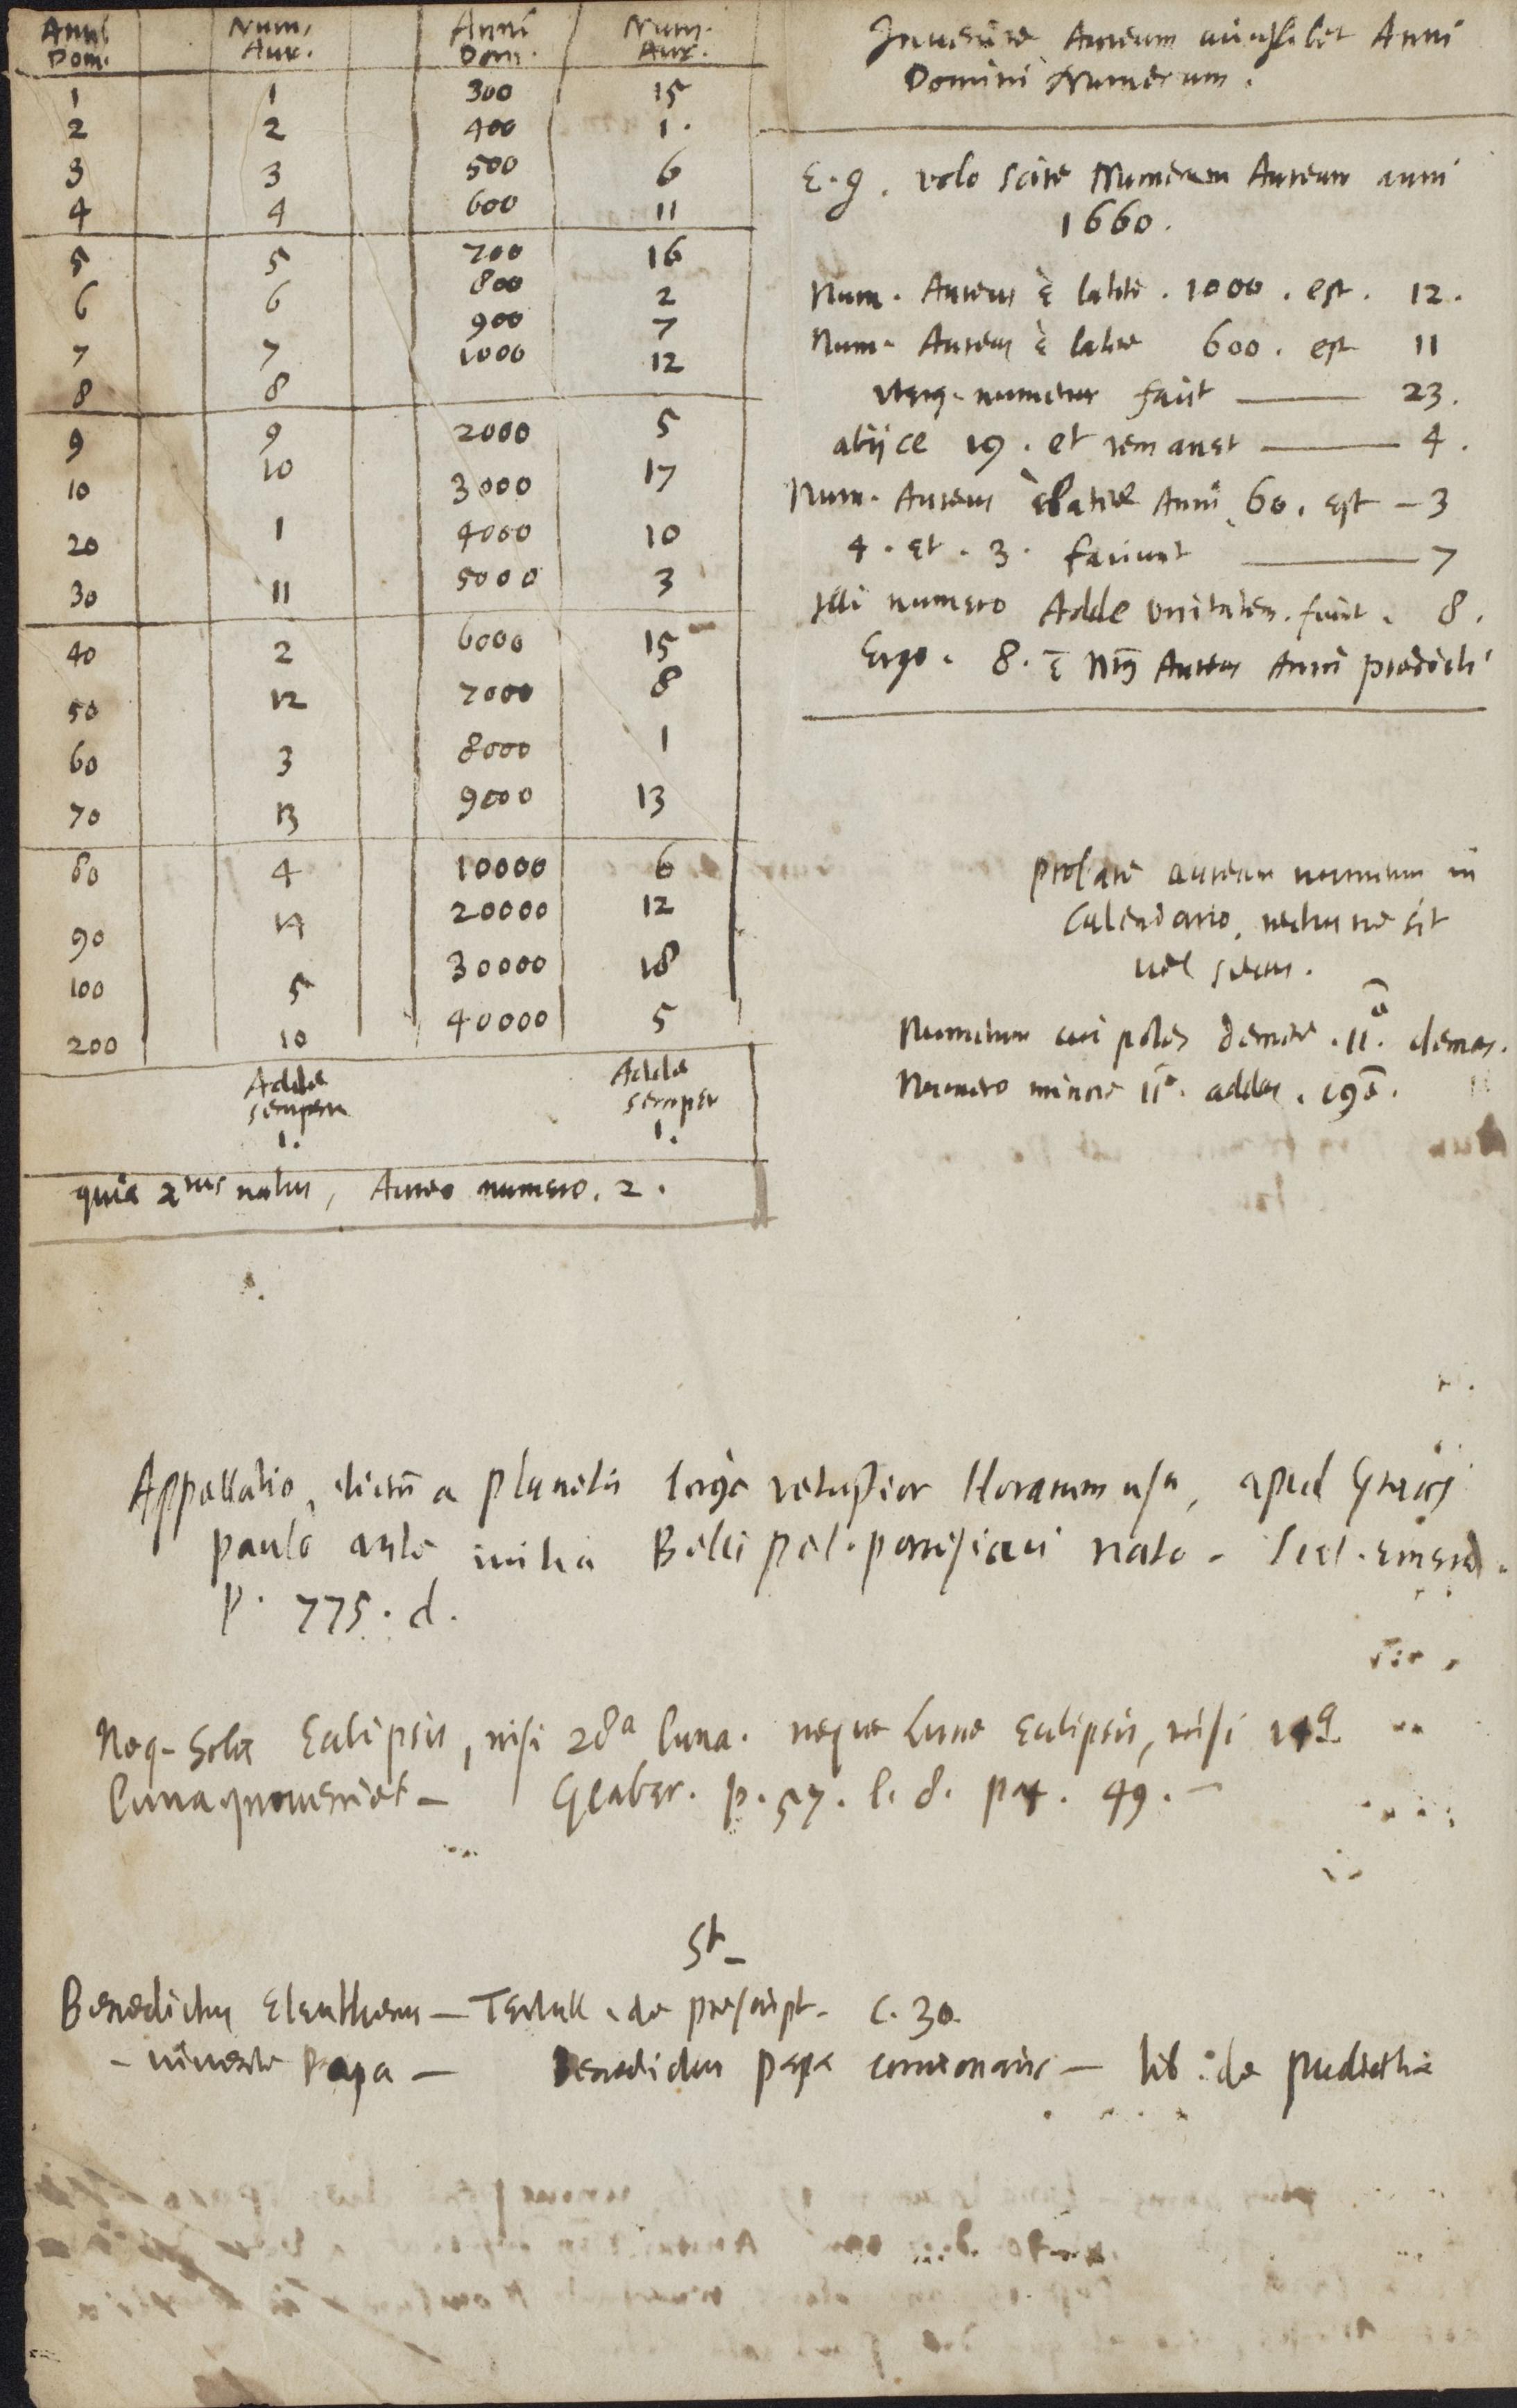 Anni Dom. Num. Aur. Anni Dom. Num. Aur.
1 1 300 15
2 2 400 1.
3 3 500 6
4 4 600 11
5 5 700 16
6 6 800 2
7 7 900 7
8 8 1000 12
9 9 2000 5
10 10 3000 17
20 1 4000 10
30 11 5000 3
40 2 6000 15
50 12 7000 8
60 3 8000 1
70 13 9000 13
80 4 10000 6
90 14 20000 12
100 5 30000 18
200 10 40000 5
Adde semper 1. Adde semper 1.
quia natus, Aureo numero. 2.
Invenire Aureum cuiuslibet Anni
Domini Numerum.
E. g. volo scire Numerum Aureum anni
1660.
Num. Aureus è latere. 1000. est. 12.
Num. Aureus è latere 600. est 11
numerus faciūt — 23.
abijce 19. et remanet — 4.
Num. Aureus è latere Anni 60. est — 3
4. et. 3. faciunt — 7
numero Adde unitatem. fiunt. 8.
Ergo. 8. ē Aureus Anni predicti
probare aureum numerum in
Calendario, rectus ne sit
vel secus.
Numerum cui potes demere. 11. demas.
Numero minore 11. addas. 19.
Appellatio, dierū a planetis longe vetustior Horarum usu, apud Grecos
paulo ante initia Belli pelponesiaci nato. Scal. emend.
p. 775. d.
Neq. Solis Eclipsis, nisi 28ª luna. neque Lune eclipsis, nisi 14ª
Luna proveniet — Glaber. p. 57. l. d. 49. —
St —
Benedictus Eleutherus — Tertull. de prescript. c. 30.
— Papa — Benedictus papa — lib: de pudicitia